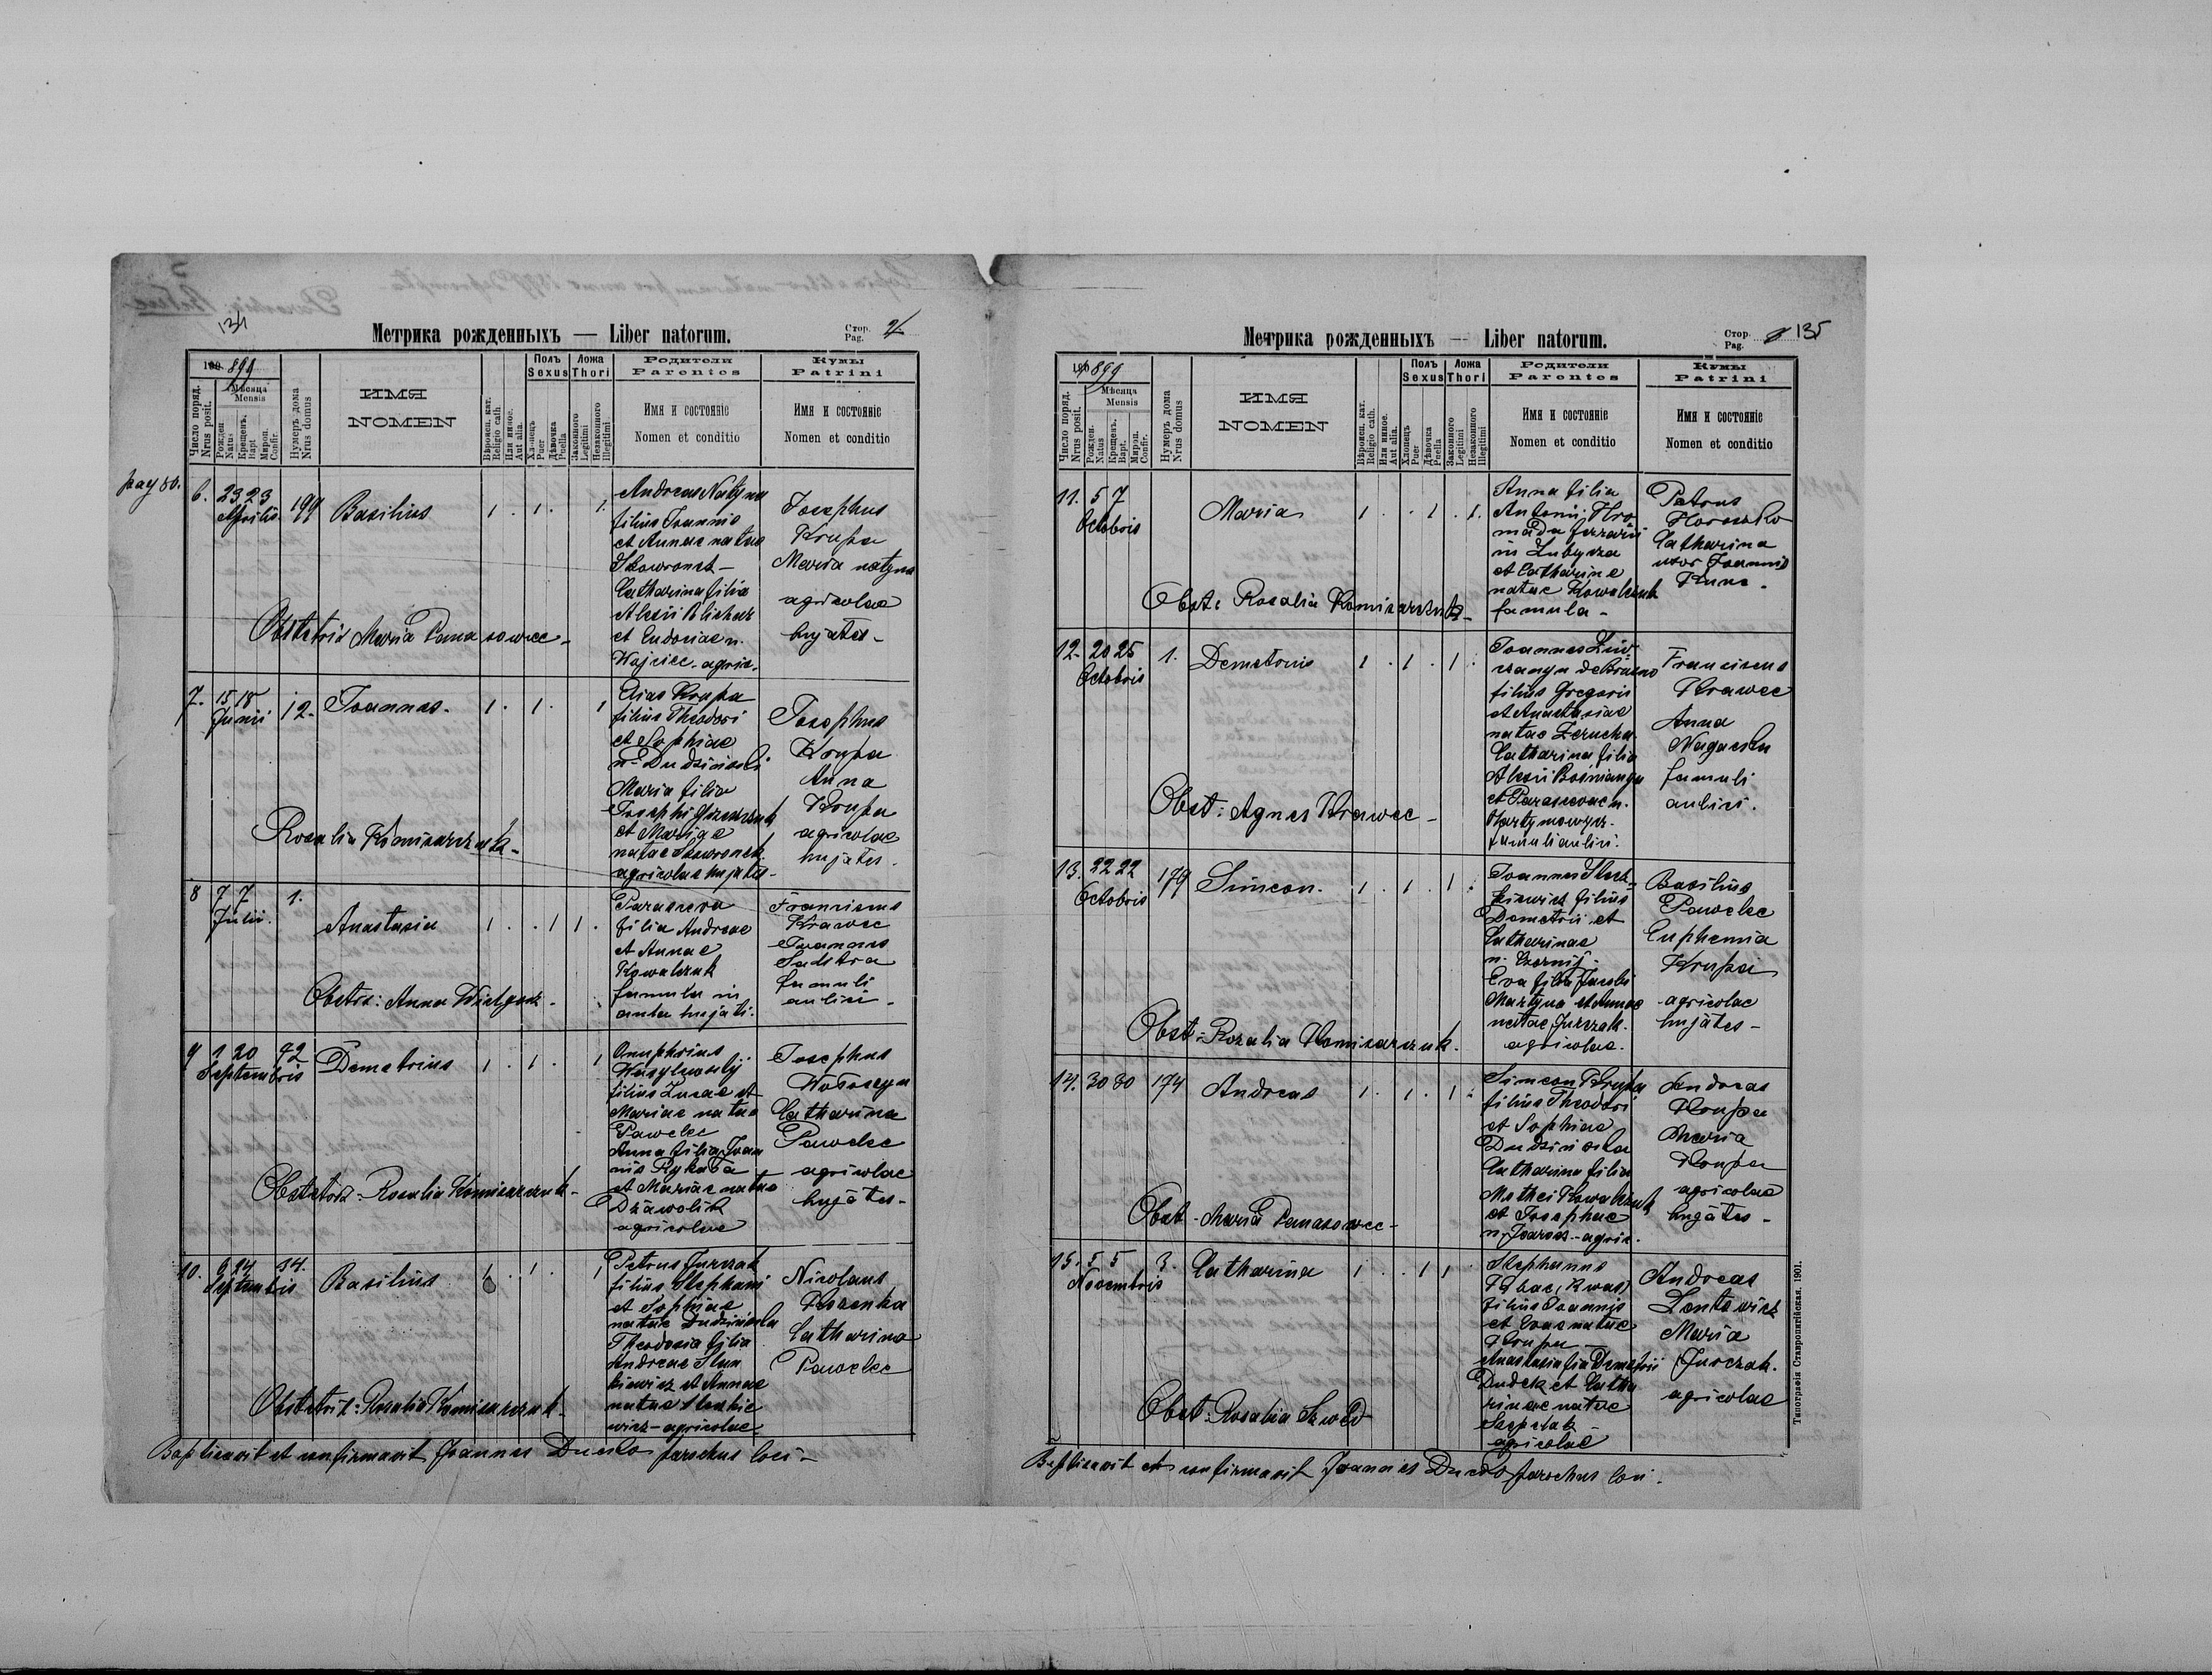 134
Метрика рожденныхъ — Liber natorum.
Стор.
Pag.
899
Число поряд.
Nrus posit.
Мѣсяца
Mensis
Рожден.
Natus
Крещенъ.
Bapt
Мироп.
Confir.
Нумеръ дома
Nrus domus
ИМЯ
NOMEN
Вѣроисп. кат.
Religio cath.
Или иное.
Aut alia.
Полъ
Sexus
Хлопецъ
Puer
Дѣвочка
Puella
Ложа
Thori
Законного
Legitimi
Незаконного
Illegitimi
Родители
Parentes
Имя и состояніе
Nomen et conditio
Кумы
Patrini
Имя и состояніе
Nomen et conditio
pag 80.
6. 23 23 Aprilis 199 Basilius 1 . 1 . 1.
Andreas Natyna
filius Joannis
et Annae natae
Skowronek –
Catharina filia
Alexii Blichar
et Eudociae n.
Wajciec – agric.
Josephus
Krupa
Maria natyna
agricolae
hujates –
Obstetrix Maria Panasowiec –
7. 15 18 Junii 12. Joannes. 1 . 1 . 1
Elias Krupa
filius Theodori
et Sophiae
n. Dudzinski
Maria filia
Josephi
et Mariae
natae Skowronek.
agricolae hujates –
Josephus
Krupa
Anna
Krupa
agricolae
hujates.
Rosalia Komisarczuk –
8 7 7 Julii. 1. Anastasia 1 . . 1 1 .
Parasceva
filia Andreae
et Annae
Kowalczuk
famula in
aula hujati.
Franciscus
Krawec
Joannes
Sadstra
famuli
aulici –
Obstetr: Anna –
9 1 20 Septembris 72 Demetrius 1 . 1 . 1
Onuphrius
Wasylewskij
filius Lucae et
Mariae natae
Pawelec
Anna filia Joan
nis Rykała
et Mariae natae
Dzawolik
agricolae
Josephus
Wołoszyn
Catharina
Pawelec
agricolae
hujates –
Obstetrix: Rosalia Komisarczuk –
10. 9 24 Septembris 34. Basilius 1 . 1 . 1
Petrus Jurczak
filius Stephani
et Sophiae
natae Dudzinska
Theodosia filia
Andreae Stan
kiewicz et Annae
natae Stankie
wicz – agricolae.
Nicolaus
Catharina
Pawelec
Obstetrix: Rosalia Komisarczuk –
Baptisavit et confirmavit Joannes Ducko parochus loci –
Метрика рожденныхъ — Liber natorum.
Стор.
Pag.
135
1899
Число поряд.
Nrus posit.
Мѣсяца
Mensis
Рожден.
Natus
Крещенъ.
Bapt.
Мироп.
Confir.
Нумеръ дома
Nrus domus
ИМЯ
NOMEN
Вѣроисп. кат.
Religio cath.
Или иное.
Aut alia.
Полъ
Sexus
Хлопецъ
Puer
Дѣвочка
Puella
Ложа
Thori
Законного
Legitimi
Незаконного
Illegitimi
Родители
Parentes
Имя и состояніе
Nomen et conditio
Кумы
Patrini
Имя и состояніе
Nomen et conditio
11. 5 7 Octobris Maria 1 . . 1 . 1.
Anna filia
Antonii Hro
mada ferrarii
in Lubycza
et Catharine
natae Kowalczuk
famula –
Petrus
Horoszko
Catharina
uxor Joannis
Kunc –
Obst: Rosalia Komisarczuk –
12. 20 25 Octobris 1. Demetrius 1 . 1 . 1 .
Joannes
filius Gregorii
et Anastasiae
natae
Catharina filia
Alexii Bosniangu
et Parascevae n.
Martynowycz.
famuli aulici.
Franciscus
Krawec
Anna
Nagaczka
famuli
aulici.
Obst: Agnes Krawec –
13. 22 22 Octobris 179 Simeon. 1 . 1 . 1 .
Joannes Stan-
kiewicz filius
Demetrii et
Catharinae
n. Czornij –
Eva filia Jacobi
Martyna et Annae
natae Jurczak.
agricolae.
Basilius
Pawelec
Euphemia
Krupa
agricolae
hujates –
Obst: Rozalia Komisarczuk.
14. 30 30 174 Andreas 1 . 1 . 1 .
Simeon Krupa
filius Theodori
et Sophiae
Dudzinska
Catharina filia
Mathei Kowalczuk
et Josephae
n. Jarosz – agric.
Andreas
Krupa
Maria
Krupa
agricolae
hujates –
Obst – Maria Panasowiec –
15. 5 5 Novembris 3. Catharina 1 . . 1 1 .
Stephanus
filius Joannis
et Evae natae
Krupa
Anastasia fia Demetrii
Dudek et Catha
rinae natae
agricolae
Andreas
Lentowicz
Maria
Jurczak.
agricolae
Obst: Rosalia Szwed –
Baptisavit et confirmavit Joannes Ducko parochus loci –
Типографія Ставропигійская. 1901.